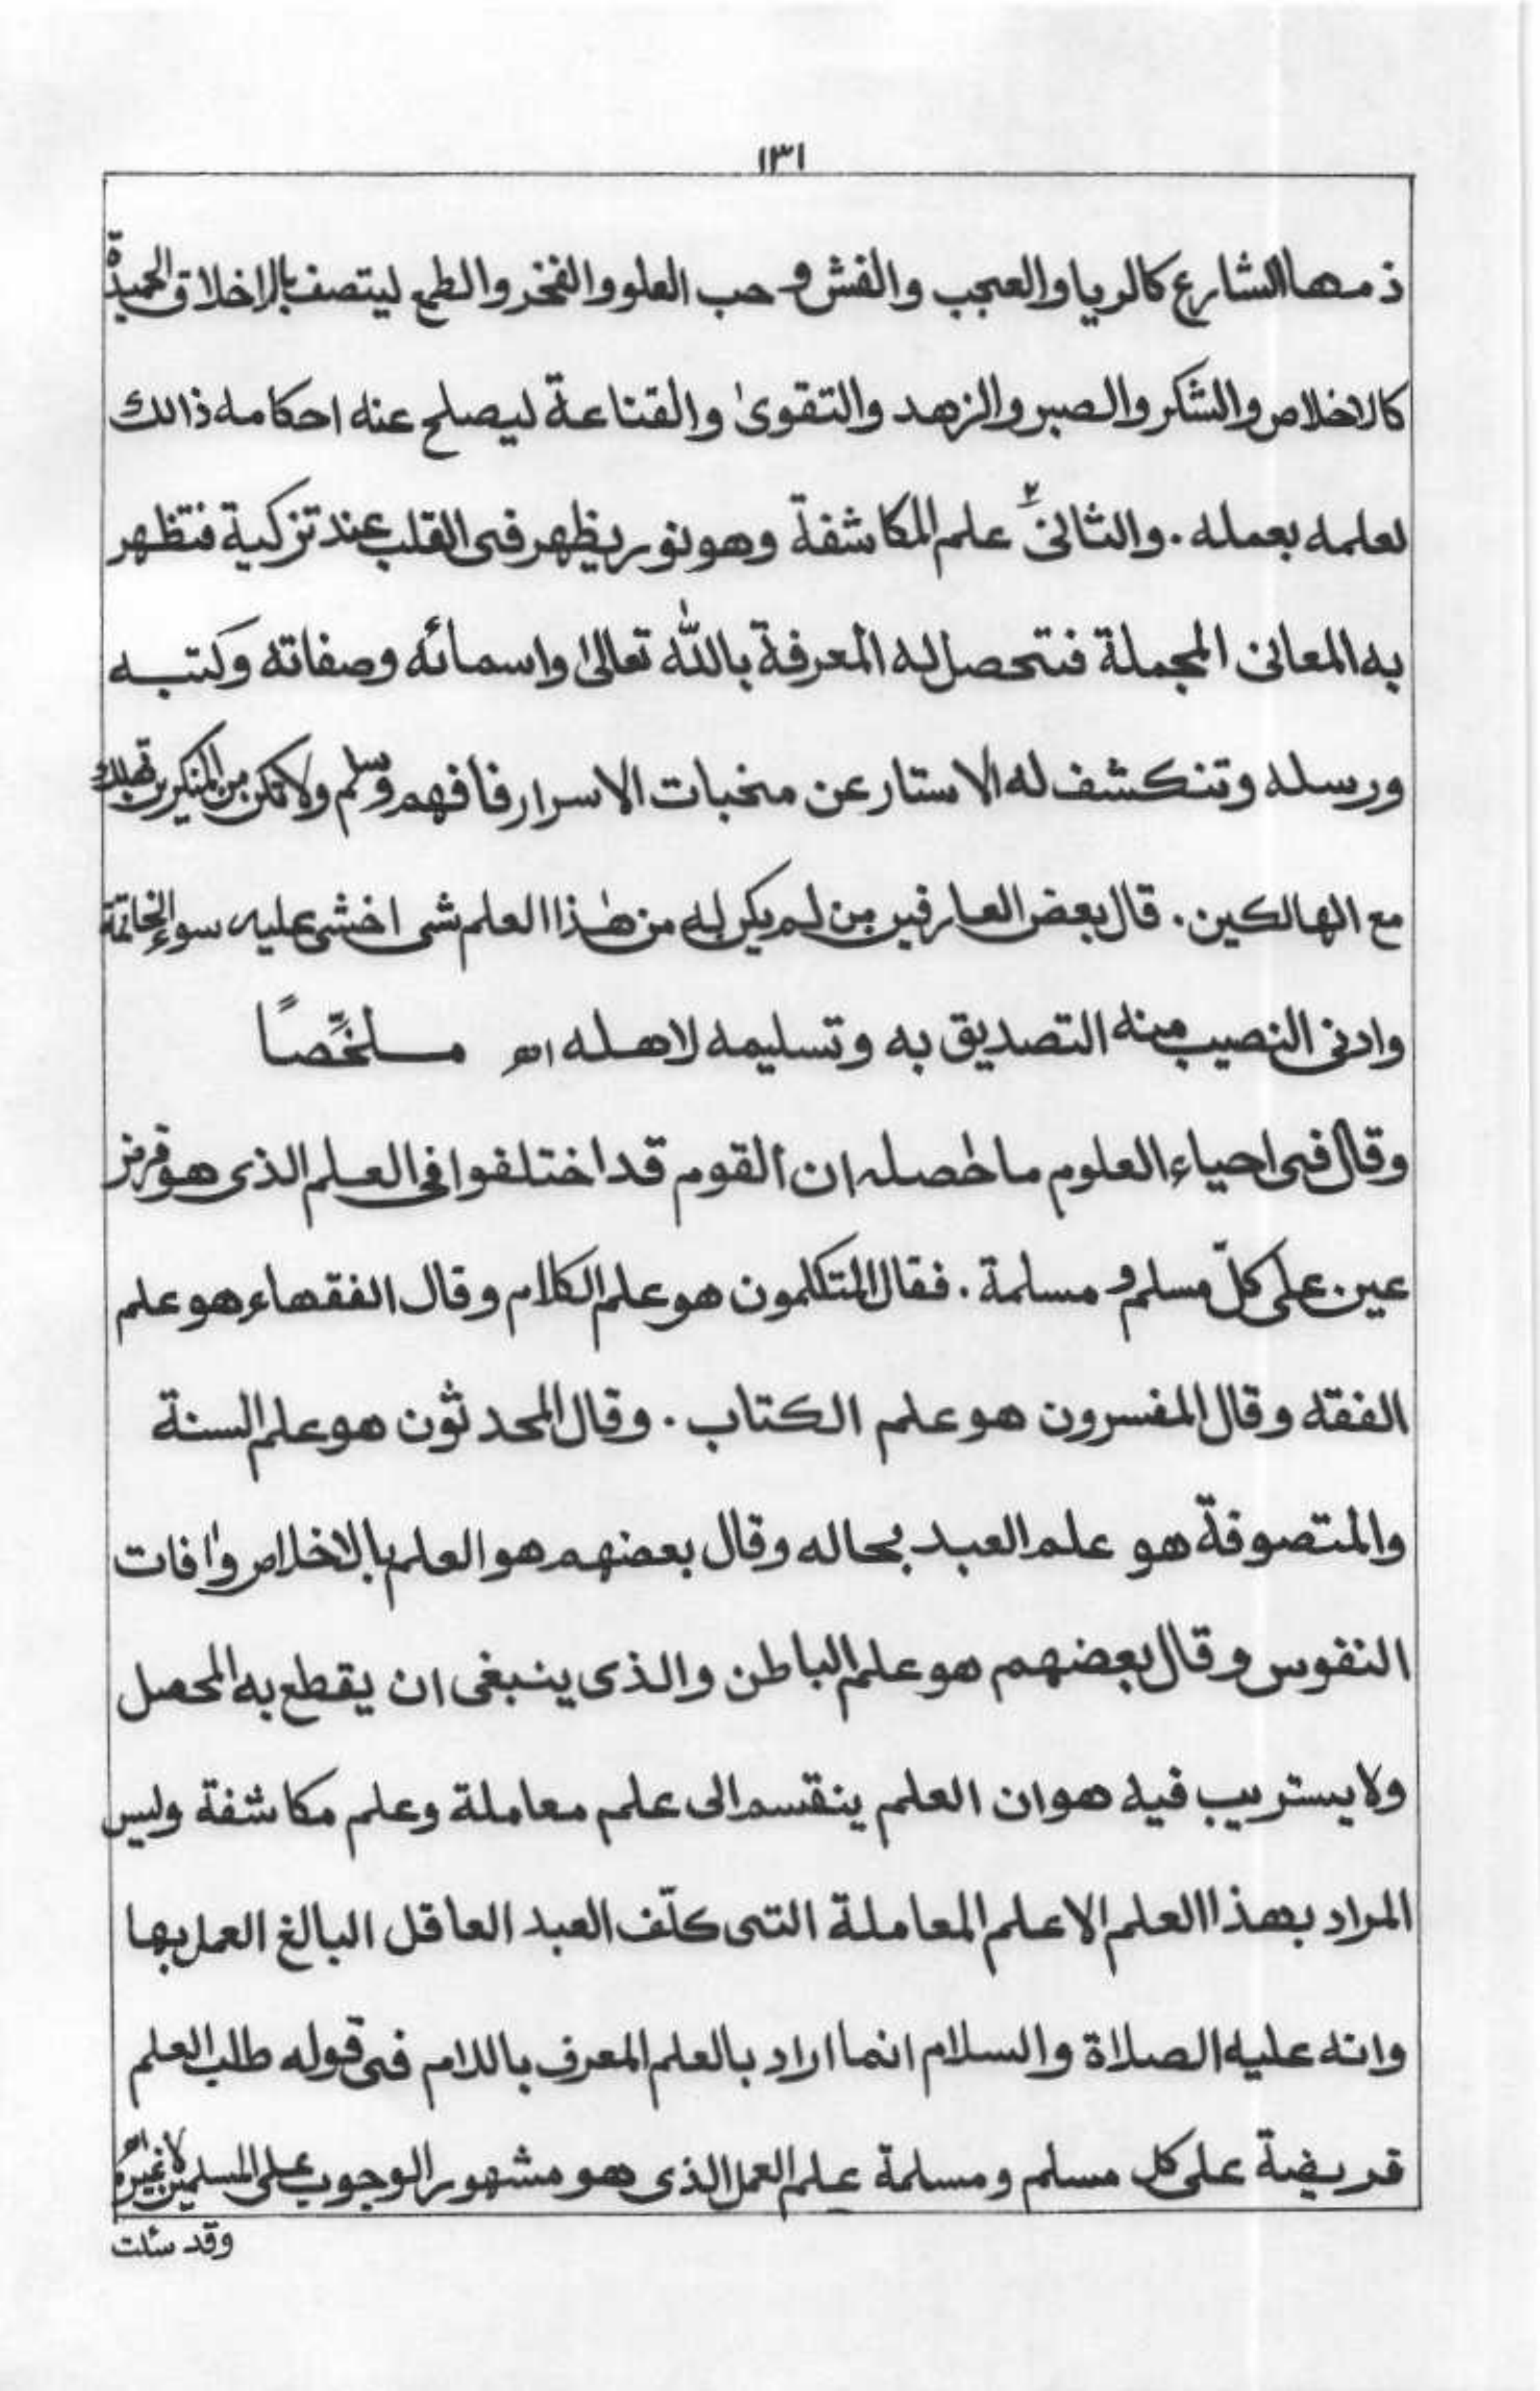 ١٣١
ذمها الشارع كالريا والعجب والغش وحب العلو والفخر والطمع ليتصف بالاخلاق الحميدة
كالاخلاص والشكر والصبر والزهد والتقوىٰ والقناعة ليصلح عنه احكامه ذالك
لعلمه بعمله. والثانى ٢ علم المكاشفة وهو نور يظهر فى القلب عند تزكية فتظهر
به المعانى المجملة فتحصل له المعرفة بالله تعالىٰ واسمائه وصفاته وكتبه
ورسله وتنكشف له الاستار عن مخبات الاسرار فافهم وسلم ولا تكن من المنكرين تهلك
مع الهالكين. قال بعض العارفين من لم يكن له من هٰذا العلم شى اخشى عليه سوء الخاتمة
وادنى النصيب منه التصديق به وتسليمه لاهله اھ ملخّصًا
وقال فى احياء العلوم ماحاصله ان القوم قد اختلفوا فى العلم الذى هو فرض
عين على كلّ مسلم و مسلمة. فقال المتكلمون هو علم الكلام وقال الفقهاء هو علم
الفقه وقال المفسرون هو علم الكتاب. وقال المحدثون هو علم السنة
والمتصوفة هو علم العبد بحاله وقال بعضهم هو العلم بالاخلاص واٰفات
النفوس وقال بعضهم هو علم الباطن والذى ينبغى ان يقطع به المحصل
ولا يستريب فيه هو ان العلم ينقسم الى علم معاملة وعلم مكاشفة وليس
المراد بهذا العلم الا علم المعاملة التى كلّف العبد العاقل البالغ العمل بها
وانه عليه الصلاة والسلام انما اراد بالعلم المعرف باللام فى قوله طلب العلم
فريضة على كل مسلم ومسلمة علم العمل الذى هو مشهور الوجوب على المسلمين لا غيره اھ
وقد سئلت